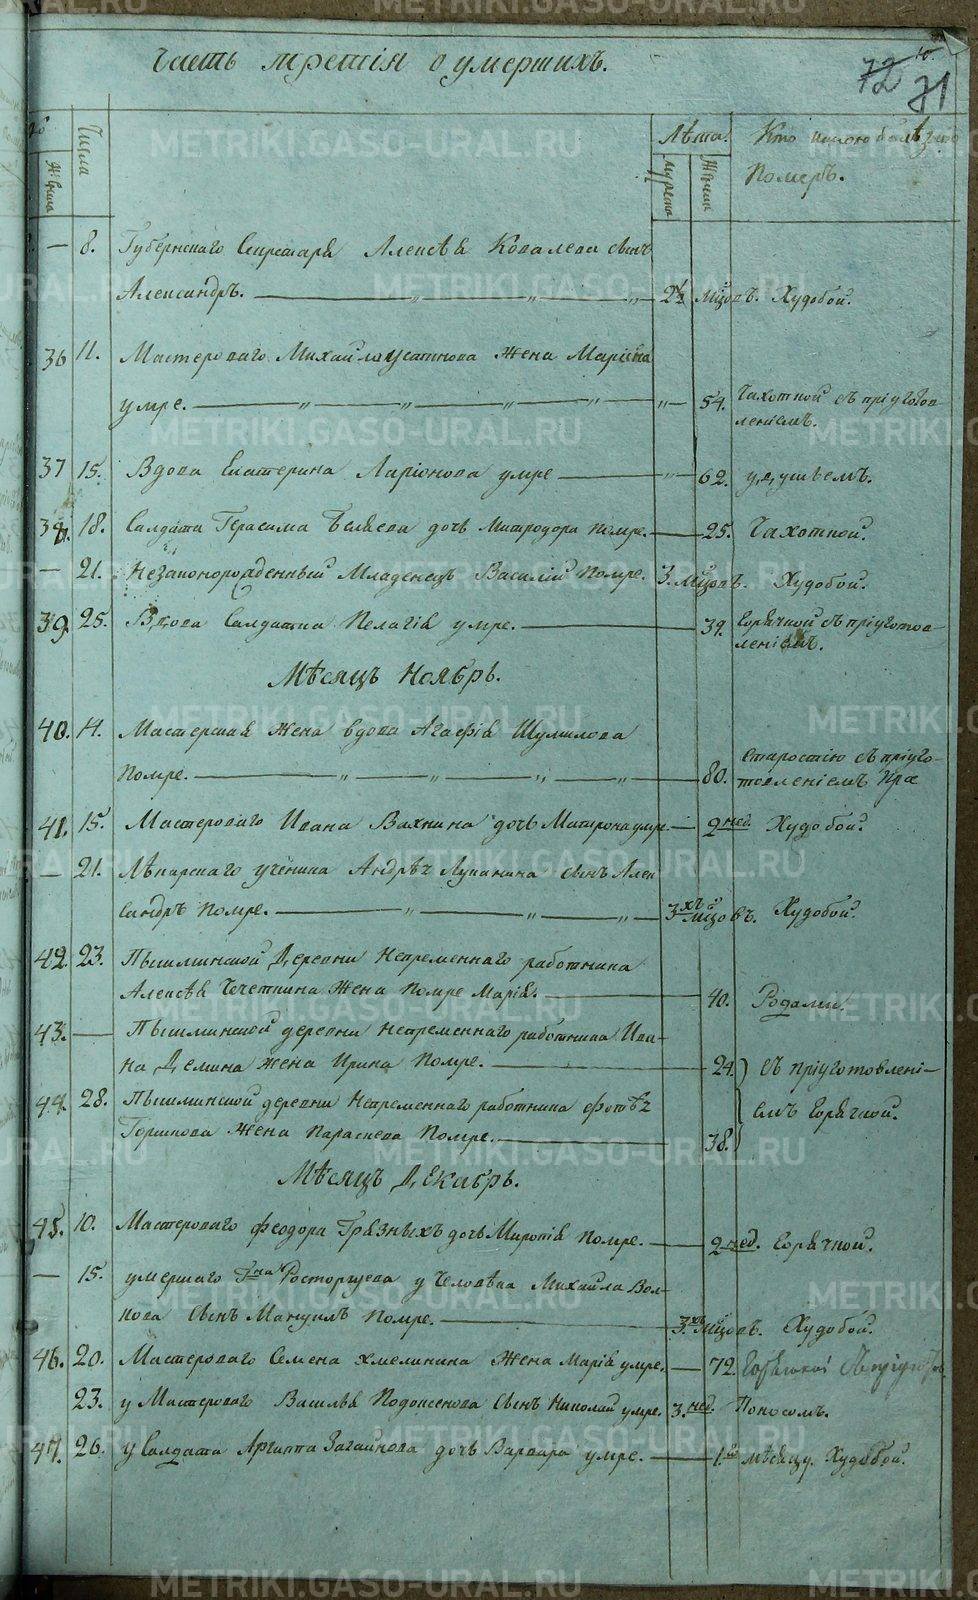 Часть третія о умершихъ.
72 71
Числа
Женска
Лѣта.
Мужеска
Женска
Кто какою болѣзнію
Померъ.
— 8. Губернскаго Секретаря Алексѣя Ковалева сынъ
Александръ. — „ — „ — „ — 2½ мѣсяцовъ. Худобой.
36 11. Мастероваго Михайло Устинова Жена Маріяна
умре. — „ — „ — „ — „ — 54. Чахоткой съ пріуготов
леніемъ.
37 15. Вдова Екатерина Ларіонова умре — „ — 62. удушьемъ.
38. 18. Салдата Герасима Бѣляева дочь Митродора помре. — 25. Чахоткой.
— 21. Незаконорожденный Младенецъ Василій Помре. 3. мѣсяцовъ. Худобой.
39. 25. Вдова Салдатка Пелагія умре. — 39. Горячкой съ пріуготов-
леніемъ.
Мѣсяцъ Ноябрь.
40. 14. Мастерская Жена вдова Агафія Шумилова
Помре. — „ — „ — „ — „ — 80. Старостію съ пріуго-
товленіемъ
41. 15. Мастероваго Ивана Вахнина дочь Матрона умре — 2 нед. Худобой.
— 21. Лѣкарскаго ученика Андрѣя Лупанина сынъ Алек
сандръ Помре. — „ — „ — „ — 3хъ мѣсяцовъ. Худобой.
42. 23. Пышминской Деревни Непременнаго работника
Алексѣя Чечеткина Жена Помре Марія. — 40. Родами
43. — Пышминской деревни Непременнаго работника Ива-
на Демина жена Ирина Помре. — 24. съ пріуготовлені-
44. 28. Пышминской деревни Непременнаго работника Фотѣя
емъ Горячкой.
Горшкова Жена Параскева Помре. — 38.
Мѣсяцъ Декабрь.
45. 10. Мастероваго Феодора Грязныхъ дочь Миропія Помре. — 2 нед. Горячкой.
— 15. умершаго Расторгуева у Человѣка Михайла Вол-
кова Сынъ Мануилъ Помре. — 3хъ мѣсяцовъ. Худобой.
46. 20. Мастероваго Семена Хмелинина Жена Марія умре. — 72. Горячкой
23. у Мастероваго Василья Подоксенова Сынъ Николай умре. 3. нед. Поносомъ.
47. 26. у Салдата Архипа Загайнова дочь Варвара умре. — 1й мѣсяцъ. Худобой.
METRIKI.GASO-URAL.RU